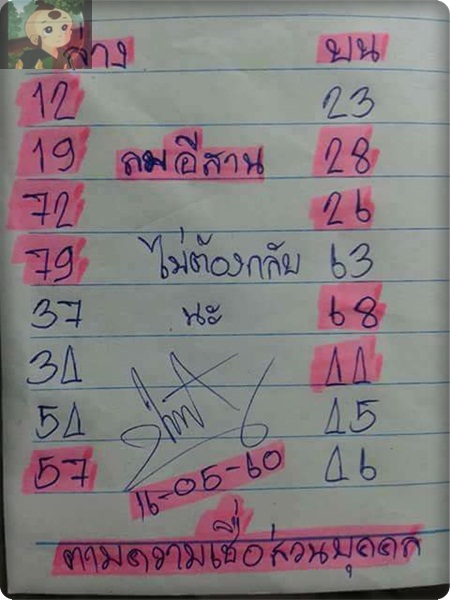 ล่าง บน
12 23
19 ลมอีสาน 28
72 26
79 ไม่ต้องกลับ 63
37 นะ 68
34 44
54 45
57 46
16-05-60
ตามความเชื่อส่วนบุคคล